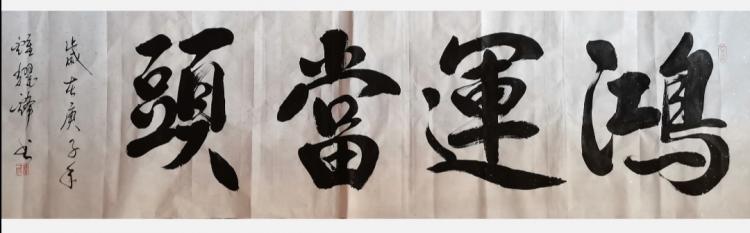 鴻運當頭
歲在庚子年
鍾耀緯書